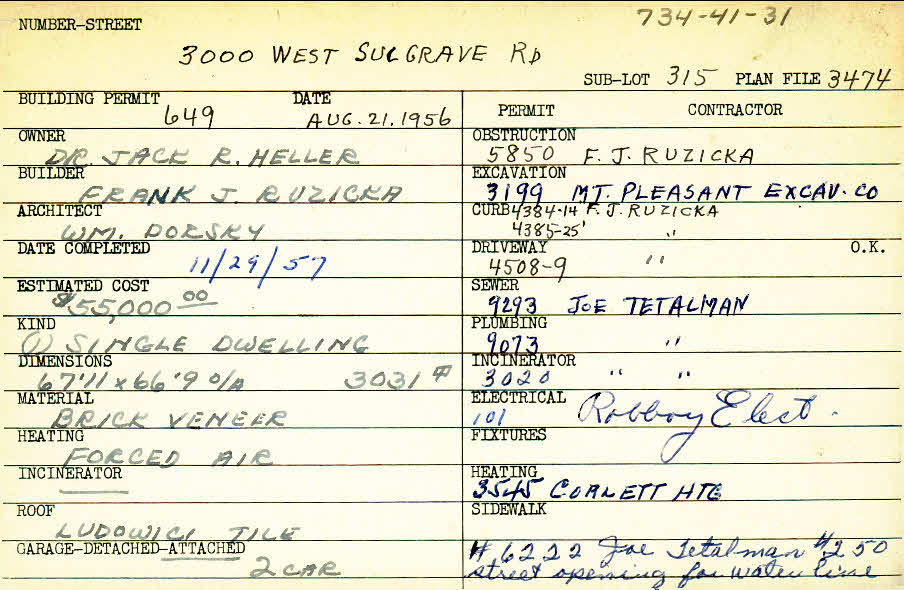 734-41-31
NUMBER-STREET
3000 WEST SULGRAVE RD
SUB-LOT 315 PLAN FILE 3474
BUILDING PERMIT DATE
649 AUG. 21, 1956
OWNER
DR. JACK R. HELLER
BUILDER
FRANK J. RUZICKA
ARCHITECT
WM. DORSKY
DATE COMPLETED
11/29/57
ESTIMATED COST
$55,000 00
KIND
(1) SINGLE DWELLING
DIMENSIONS
67'11 x 66'9 O/A 3031
MATERIAL
BRICK VENEER
HEATING
FORCED AIR
INCINERATOR
ROOF
LUDOWICI TILE
GARAGE-DETACHED-ATTACHED
2 CAR
PERMIT CONTRACTOR
OBSTRUCTION
5850 F. J. RUZICKA
EXCAVATION
3199 MT. PLEASANT EXCAV. CO
CURB 4384-14 F. J. RUZICKA
4385-25' "
DRIVEWAY O.K.
4508-9 "
SEWER
9293 JOE TETALMAN
PLUMBING
9073 "
INCINERATOR
3020 " "
ELECTRICAL
101 Robboy Elect.
FIXTURES
HEATING
3545 CORLETT HTG
SIDEWALK
#6222 Joe Tetalman #250
street opening for water line